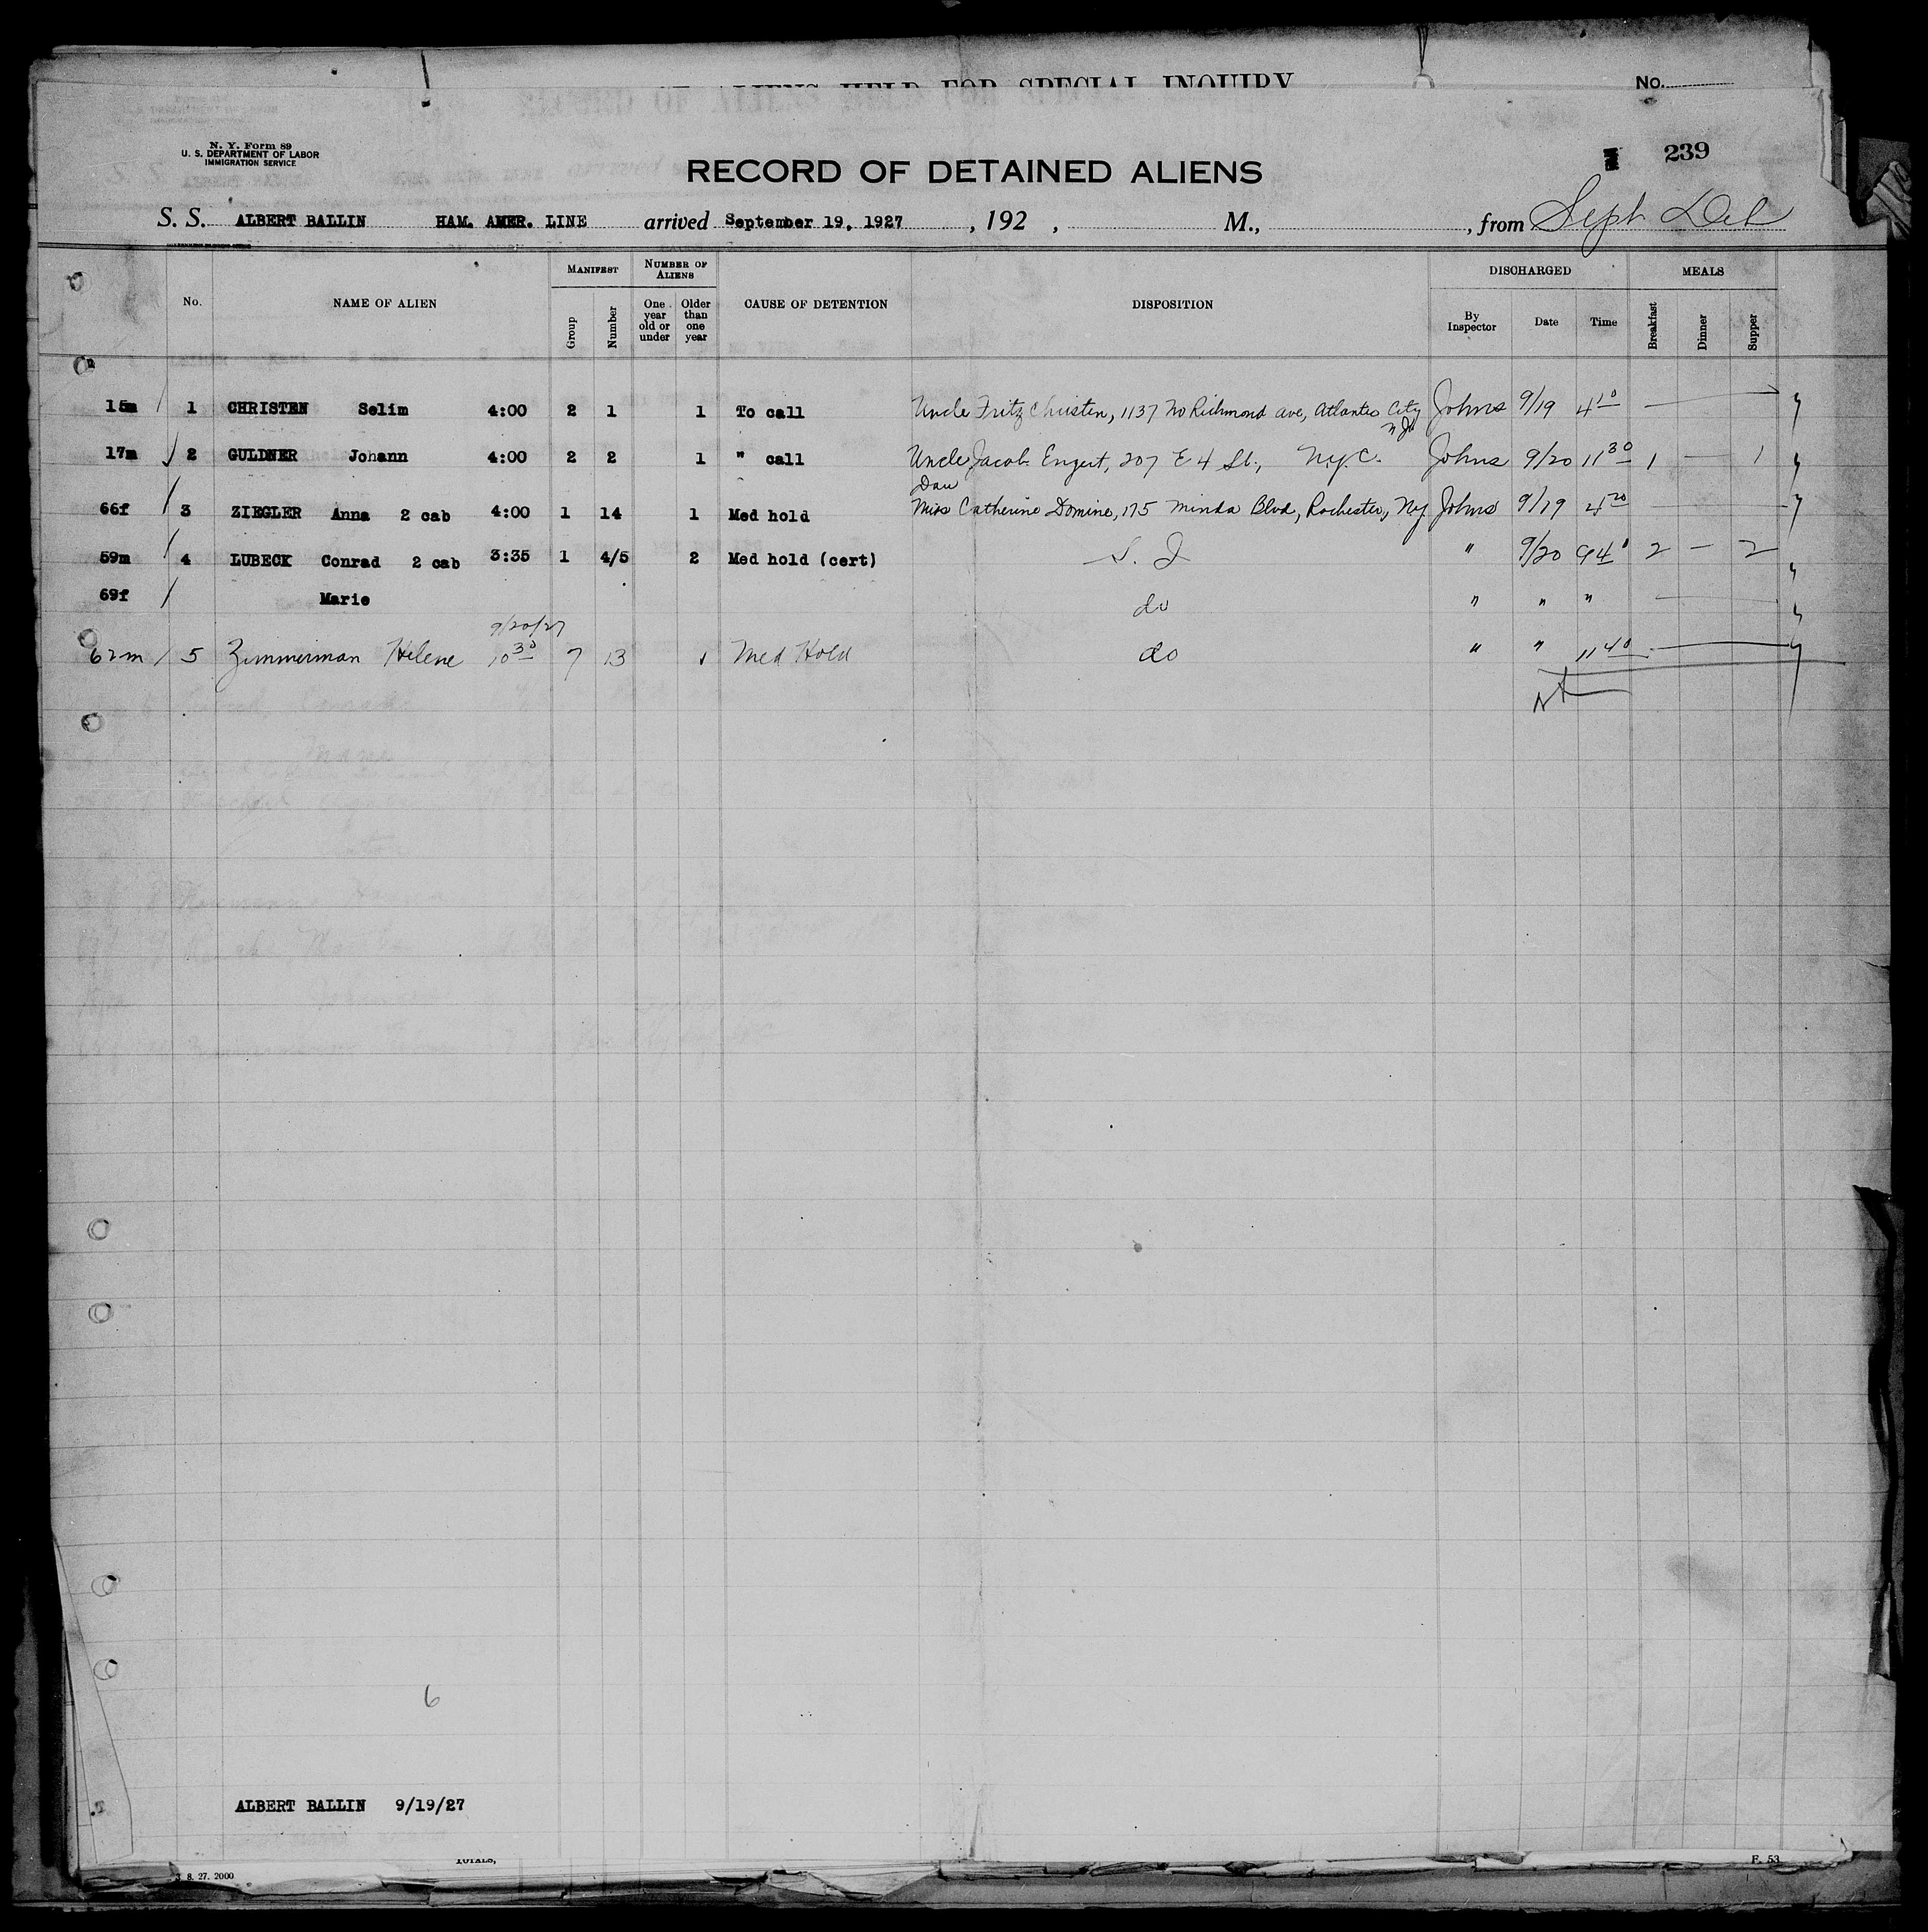 No.
N. Y. Form 89
U. S. DEPARTMENT OF LABOR
IMMIGRATION SERVICE
239
RECORD OF DETAINED ALIENS
S. S. ALBERT BALLIN HAM. AMER. LINE arrived September 19, 1927 , 192 , M., , from Sept Del
No. NAME OF ALIEN MANIFEST Group Number NUMBER OF ALIENS One year old or under Older than one year CAUSE OF DETENTION DISPOSITION DISCHARGED By Inspector Date Time MEALS Breakfast Dinner Supper
15m 1 CHRISTEN Selim 4:00 2 1 1 To call Uncle Fritz Christen, 1137 No Richmond ave, Atlantic City N.J. Johns 9/19 4 10
17m 2 GULDNER Johann 4:00 2 2 1 " call Uncle Jacob Engert, 207 E 4 St., N.Y.C. Johns 9/20 11 30 1 — 1
Dau
66f 3 ZIEGLER Anna 2 cab 4:00 1 14 1 Med hold Miss Catherine Domine, 175 Minda Blvd, Rochester, NY Johns 9/19 4 20
59m 4 LUBECK Conrad 2 cab 3:35 1 4/5 2 Med hold (cert) S. I " 9/20 9 40 2 — 2
69f Marie do " " "
9/20/27
62m 5 Zimmerman Helene 10 30 7 13 1 Med Hold do " " 11 40
6
ALBERT BALLIN 9/19/27
TOTALS,
8. 27. 2000
F. 53